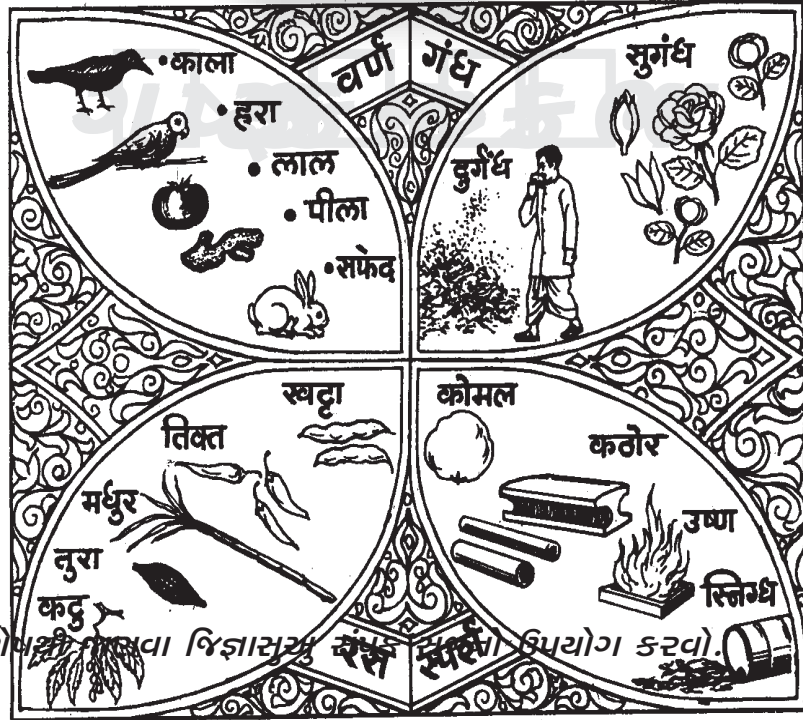 वर्ण
गंध
• काला
• हरा
• लाल
• पीला
• सफेद
सुगंध
दुर्गंध
खट्टा
तिक्त
मधुर
तुरा
कटु
कोमल
कठोर
उष्ण
स्निग्ध
જિજ્ઞાસુએ
ઉપયોગ કરવો.
रस
स्पर्श